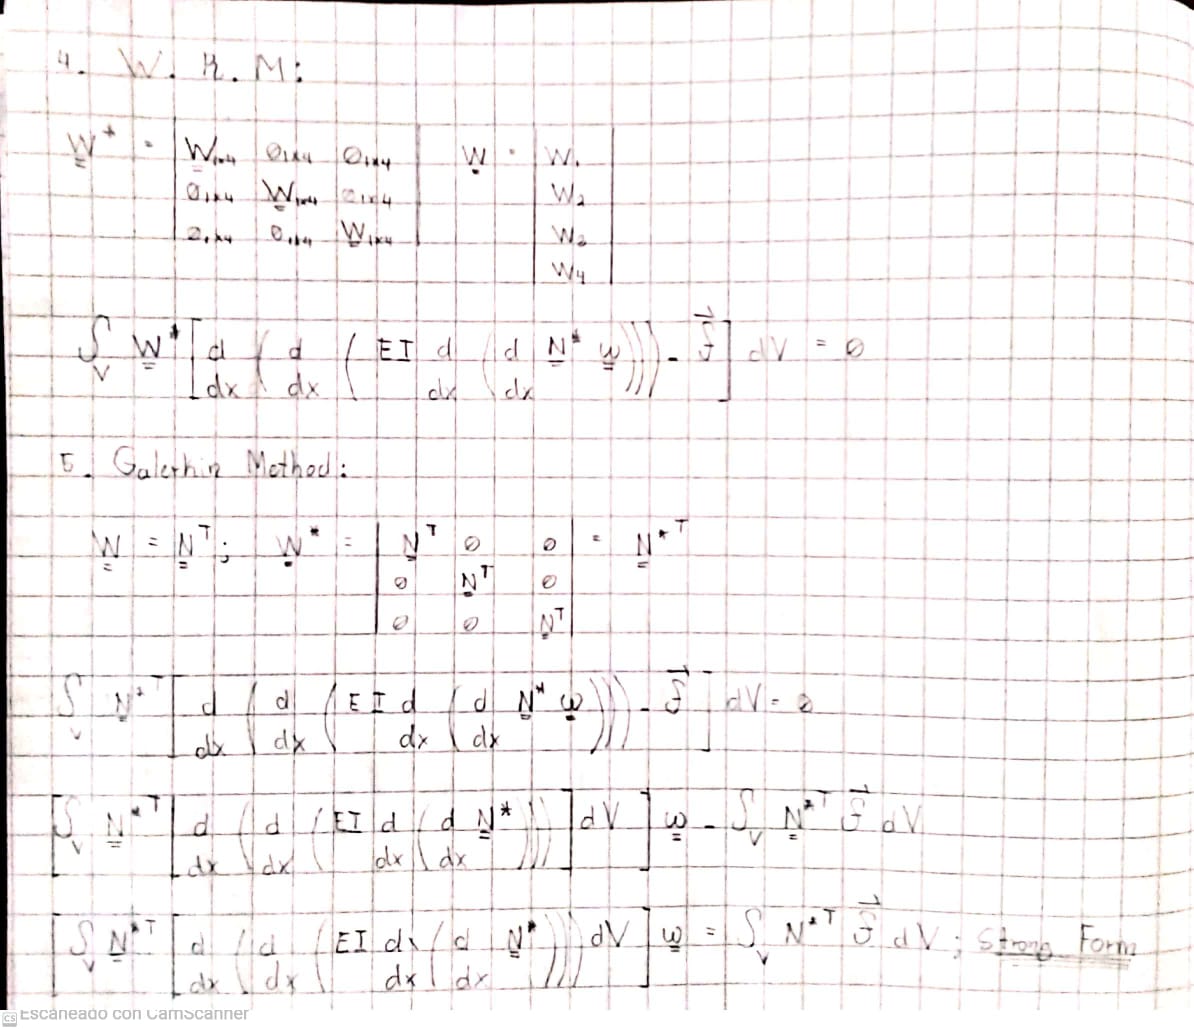 4. W. R. M:
W* = | W₁ₓ₄ 0₁ₓ₄ 0₁ₓ₄ | W = | W₁ |
| 0₁ₓ₄ W₁ₓ₄ 0₁ₓ₄ | | W₂ |
| 0₁ₓ₄ 0₁ₓ₄ W₁ₓ₄ | | W₃ |
| W₄ |
∫_V W* [ d/dx ( d/dx ( EI d/dx ( d/dx N* w ))) - f⃗ ] dV = 0
5. Galerkin Method:
W = Nᵀ; W* = | Nᵀ 0 0 | = N*ᵀ
| 0 Nᵀ 0 |
| 0 0 Nᵀ |
∫_V N*ᵀ [ d/dx ( d/dx ( EI d/dx ( d/dx N* w ))) - f⃗ ] dV = 0
[ ∫_V N*ᵀ [ d/dx ( d/dx ( EI d/dx ( d/dx N* ))) ] dV ] w - ∫_V N*ᵀ f⃗ dV
[ ∫_V N*ᵀ [ d/dx ( d/dx ( EI d/dx ( d/dx N* ))) dV ] w = ∫_V N*ᵀ f⃗ dV; Strong Form
CS Escaneado con CamScanner